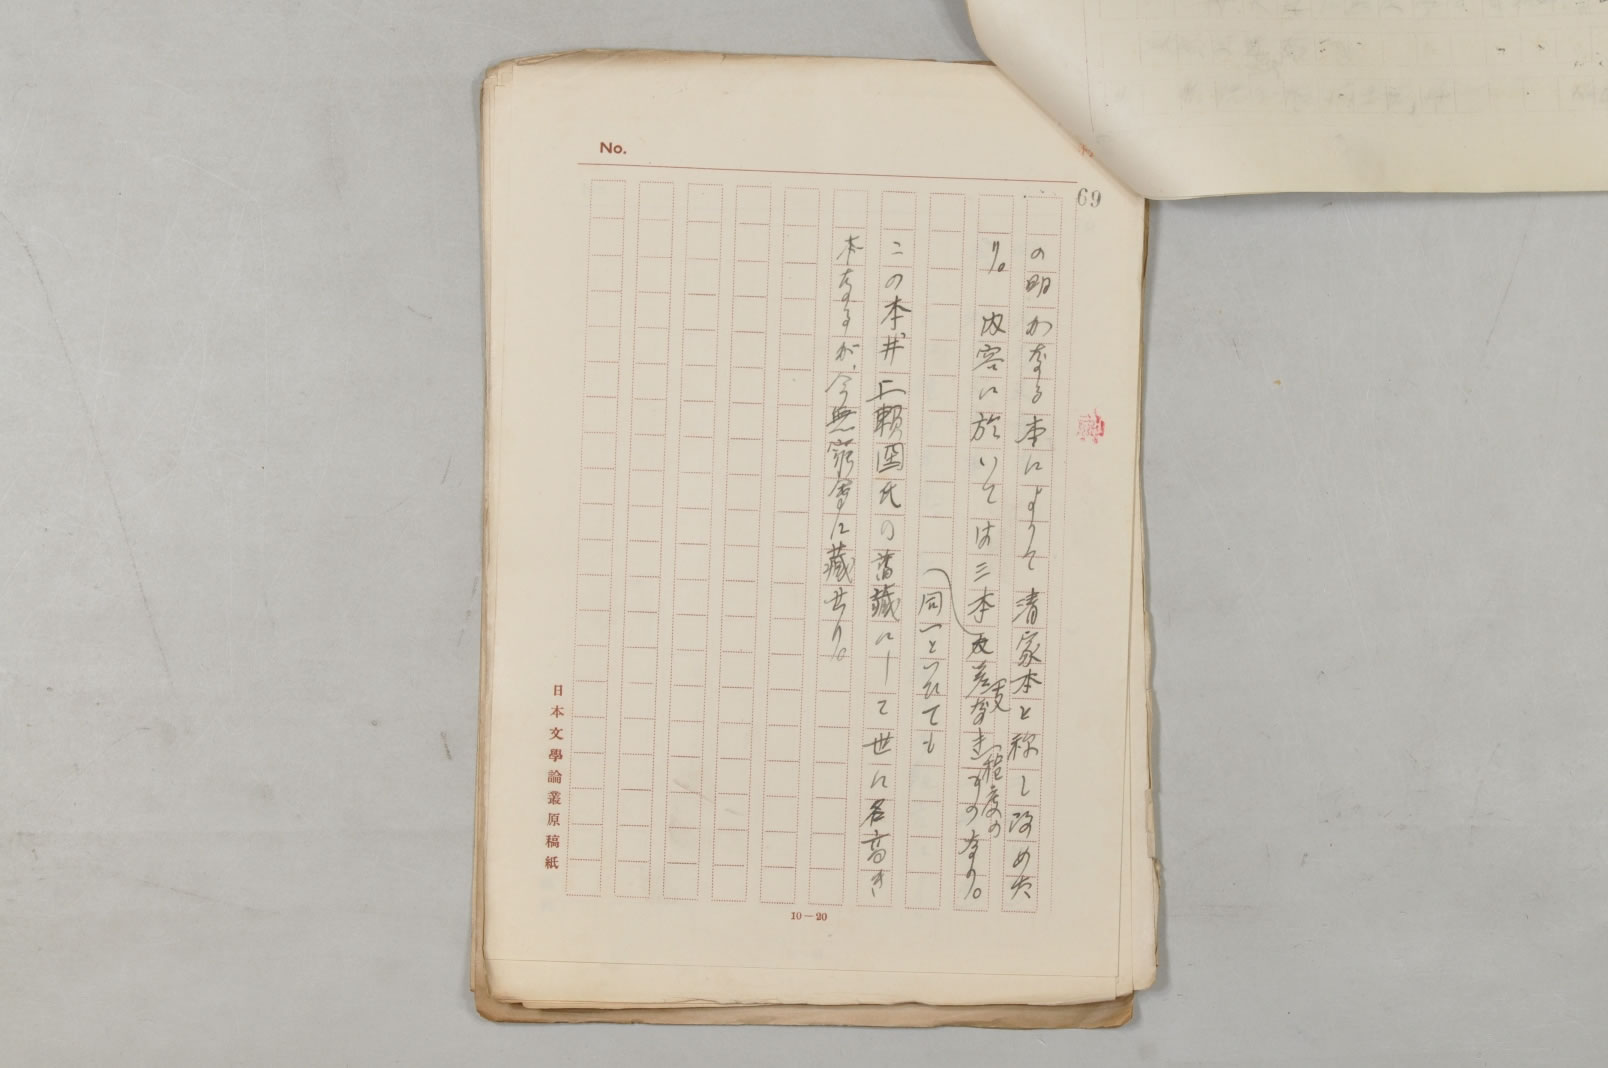 No.
69
の明かなる本によりて清家本と称し改めた
り。 内容に於いては三本
程度の
ものなり。
同一といひても
この本井上頼圀氏の舊藏にして世に名高き
本なるが、今無窮會に藏せり。
日本文學論叢原稿紙
10-20